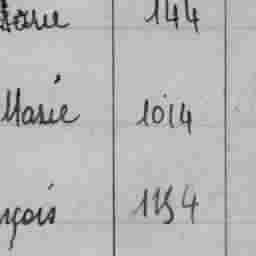 Marie 144
Marie 1014
çois 1154